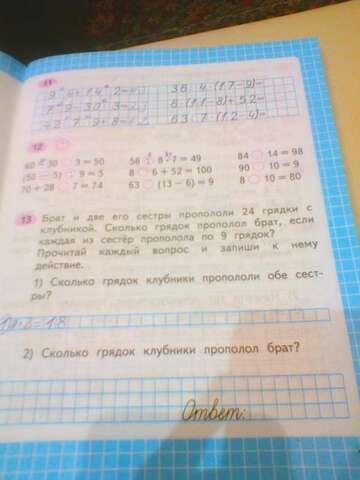 11
36 : 4 · (17 – 9) =
6 · (11 – 8) + 52 =
63 : 7 · (12 – 4) =
12
60 30 3 = 50 56 8 7 = 49 84 14 = 98
(50 – 5) 9 = 5 8 6 + 52 = 100 90 10 = 9
70 + 28 7 = 74 63 (13 – 6) = 9 8 10 = 80
13 Брат и две его сестры пропололи 24 грядки с
клубникой. Сколько грядок прополол брат, если
каждая из сестёр прополола по 9 грядок?
Прочитай каждый вопрос и запиши к нему
действие.
1) Сколько грядок клубники пропололи обе сест-
ры?
2 = 18
2) Сколько грядок клубники прополол брат?
Ответ: